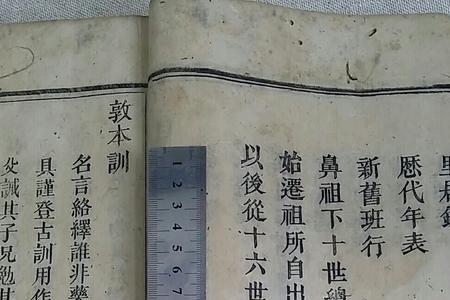 歷代年表
新舊班行
鼻祖下十世總
始遷祖所自出
以後從十六世
敦本訓
名言絡繹誰非藥
具謹登古訓用作
1 2 3 4 5 6 7